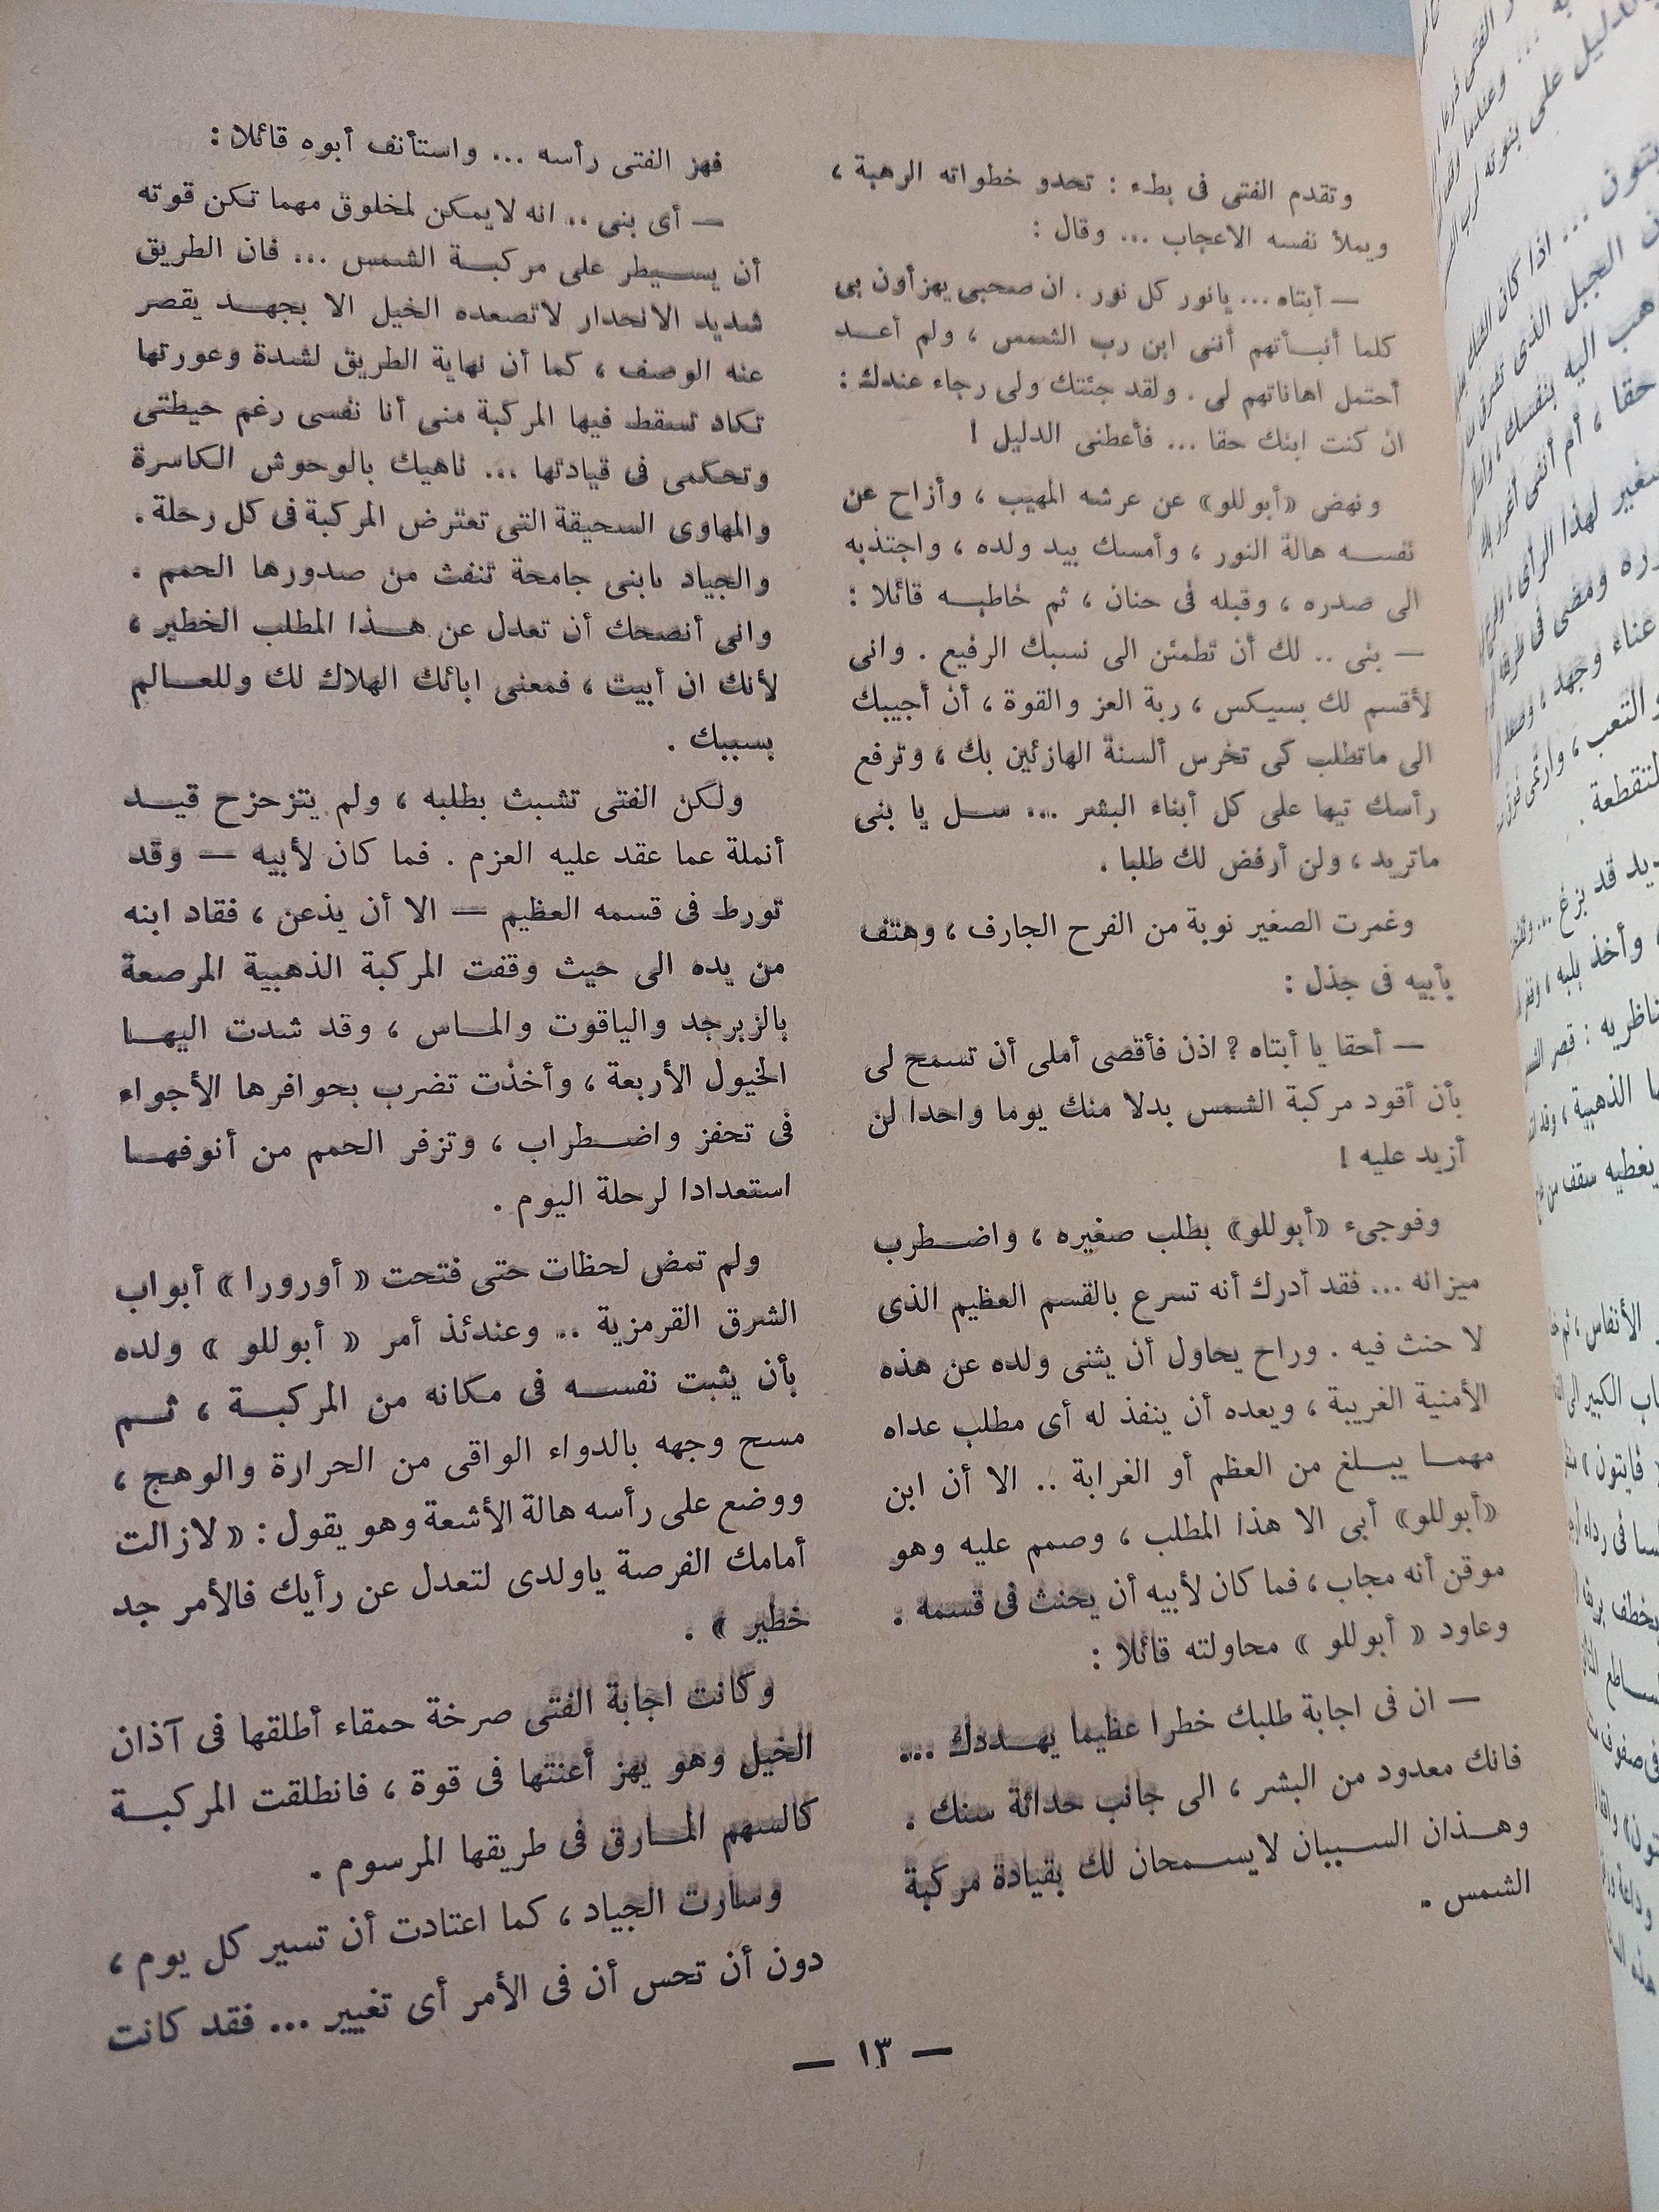 وتقدم الفتى فى بطء : تحدو خطواته الرهبة ،
ويملأ نفسه الاعجاب ... وقال :
— أبتاه ... يانور كل نور . ان صحبى يهزأون بى
كلما أنبأتهم أننى ابن رب الشمس ، ولم أعد
أحتمل اهاناتهم لى . ولقد جئتك ولى رجاء عندك :
ان كنت ابنك حقا ... فأعطنى الدليل !
ونهض «أبوللو» عن عرشه المهيب ، وأزاح عن
نفسه هالة النور ، وأمسك بيد ولده ، واجتذبه
الى صدره ، وقبله فى حنان ، ثم خاطبه قائلا :
— بنى .. لك أن تطمئن الى نسبك الرفيع . وانى
لأقسم لك بسيكس ، ربة العز والقوة ، أن أجيبك
الى ماتطلب كى تخرس ألسنة الهازئين بك ، وترفع
رأسك تيها على كل أبناء البشر ... سل يا بنى
ماتريد ، ولن أرفض لك طلبا .
وغمرت الصغير نوبة من الفرح الجارف ، وهتف
بأبيه فى جذل :
— أحقا يا أبتاه ? اذن فأقصى أملى أن تسمح لى
بأن أقود مركبة الشمس بدلا منك يوما واحدا لن
أزيد عليه !
وفوجىء «أبوللو» بطلب صغيره ، واضطرب
ميزانه ... فقد أدرك أنه تسرع بالقسم العظيم الذى
لا حنث فيه . وراح يحاول أن يثنى ولده عن هذه
الأمنية الغريبة ، ويعده أن ينفذ له أى مطلب عداه
مهما يبلغ من العظم أو الغرابة .. الا أن ابن
«أبوللو» أبى الا هذا المطلب ، وصمم عليه وهو
موقن أنه مجاب ، فما كان لأبيه أن يحنث فى قسمه .
وعاود « أبوللو » محاولته قائلا :
— ان فى اجابة طلبك خطرا عظيما يهددك ...
فانك معدود من البشر ، الى جانب حداثة سنك .
وهذان السببان لايسمحان لك بقيادة مركبة
الشمس .
فهز الفتى رأسه ... واستأنف أبوه قائلا :
— أى بنى .. انه لايمكن لمخلوق مهما تكن قوته
أن يسيطر على مركبة الشمس ... فان الطريق
شديد الانحدار لاتصعده الخيل الا بجهد يقصر
عنه الوصف ، كما أن نهاية الطريق لشدة وعورتها
تكاد تسقط فيها المركبة منى أنا نفسى رغم حيطتى
وتحكمى فى قيادتها ... ناهيك بالوحوش الكاسرة
والمهاوى السحيقة التى تعترض المركبة فى كل رحلة .
والجياد يابنى جامحة تنفث من صدورها الحمم .
وانى أنصحك أن تعدل عن هذا المطلب الخطير ،
لأنك ان أبيت ، فمعنى ابائك الهلاك لك وللعالم
بسببك .
ولكن الفتى تشبث بطلبه ، ولم يتزحزح قيد
أنملة عما عقد عليه العزم . فما كان لأبيه — وقد
تورط فى قسمه العظيم — الا أن يذعن ، فقاد ابنه
من يده الى حيث وقفت المركبة الذهبية المرصعة
بالزبرجد والياقوت والماس ، وقد شدت اليها
الخيول الأربعة ، وأخذت تضرب بحوافرها الأجواء
فى تحفز واضطراب ، وتزفر الحمم من أنوفها
استعدادا لرحلة اليوم .
ولم تمض لحظات حتى فتحت « أورورا » أبواب
الشرق القرمزية .. وعندئذ أمر « أبوللو » ولده
بأن يثبت نفسه فى مكانه من المركبة ، ثم
مسح وجهه بالدواء الواقى من الحرارة والوهج ،
ووضع على رأسه هالة الأشعة وهو يقول : « لازالت
أمامك الفرصة ياولدى لتعدل عن رأيك فالأمر جد
خطير » .
وكانت اجابة الفتى صرخة حمقاء أطلقها فى آذان
الخيل وهو يهز أعنتها فى قوة ، فانطلقت المركبة
كالسهم المارق فى طريقها المرسوم .
وسارت الجياد ، كما اعتادت أن تسير كل يوم ،
دون أن تحس أن فى الأمر أى تغيير ... فقد كانت
— ١٣ —